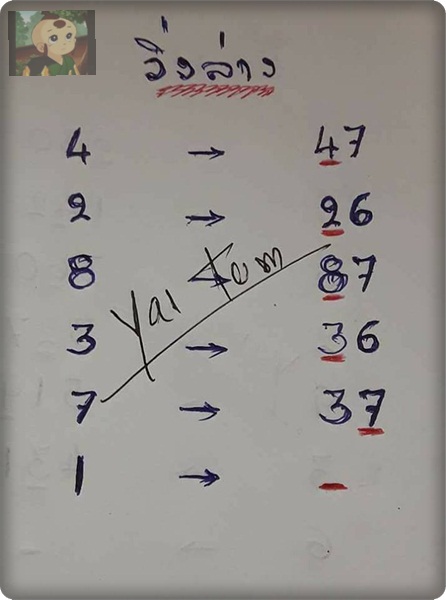 วิ่งล่าง
4 → 47
2 → 26
8 → 87
Yai Tom
3 → 36
7 → 37
1 → _